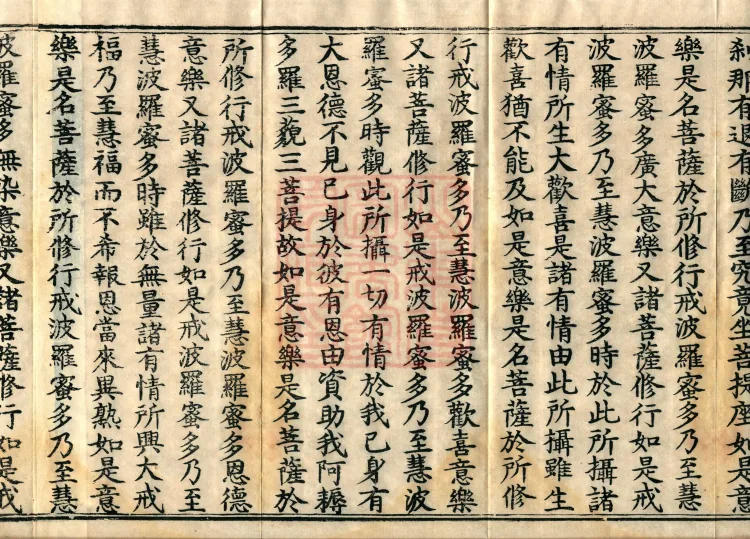 剎那有退有斷乃至究竟坐菩提座如是意
樂是名菩薩於所修行戒波羅蜜多乃至慧
波羅蜜多廣大意樂又諸菩薩修行如是戒
波羅蜜多乃至慧波羅蜜多時於此所攝諸
有情所生大歡喜是諸有情由此所攝雖生
歡喜猶不能及如是意樂是名菩薩於所修
行戒波羅蜜多乃至慧波羅蜜多歡喜意樂
又諸菩薩修行如是戒波羅蜜多乃至慧波
羅蜜多時觀此所攝一切有情於我已身有
大恩德不見已身於彼有恩由資助我阿耨
多羅三藐三菩提故如是意樂是名菩薩於
所修行戒波羅蜜多乃至慧波羅蜜多恩德
意樂又諸菩薩修行如是戒波羅蜜多乃至
慧波羅蜜多時雖於無量諸有情所興大戒
福乃至慧福而不希報恩當來異熟如是意
樂是名菩薩於所修行戒波羅蜜多乃至慧
波羅蜜多無染意樂又諸菩薩修行如是戒